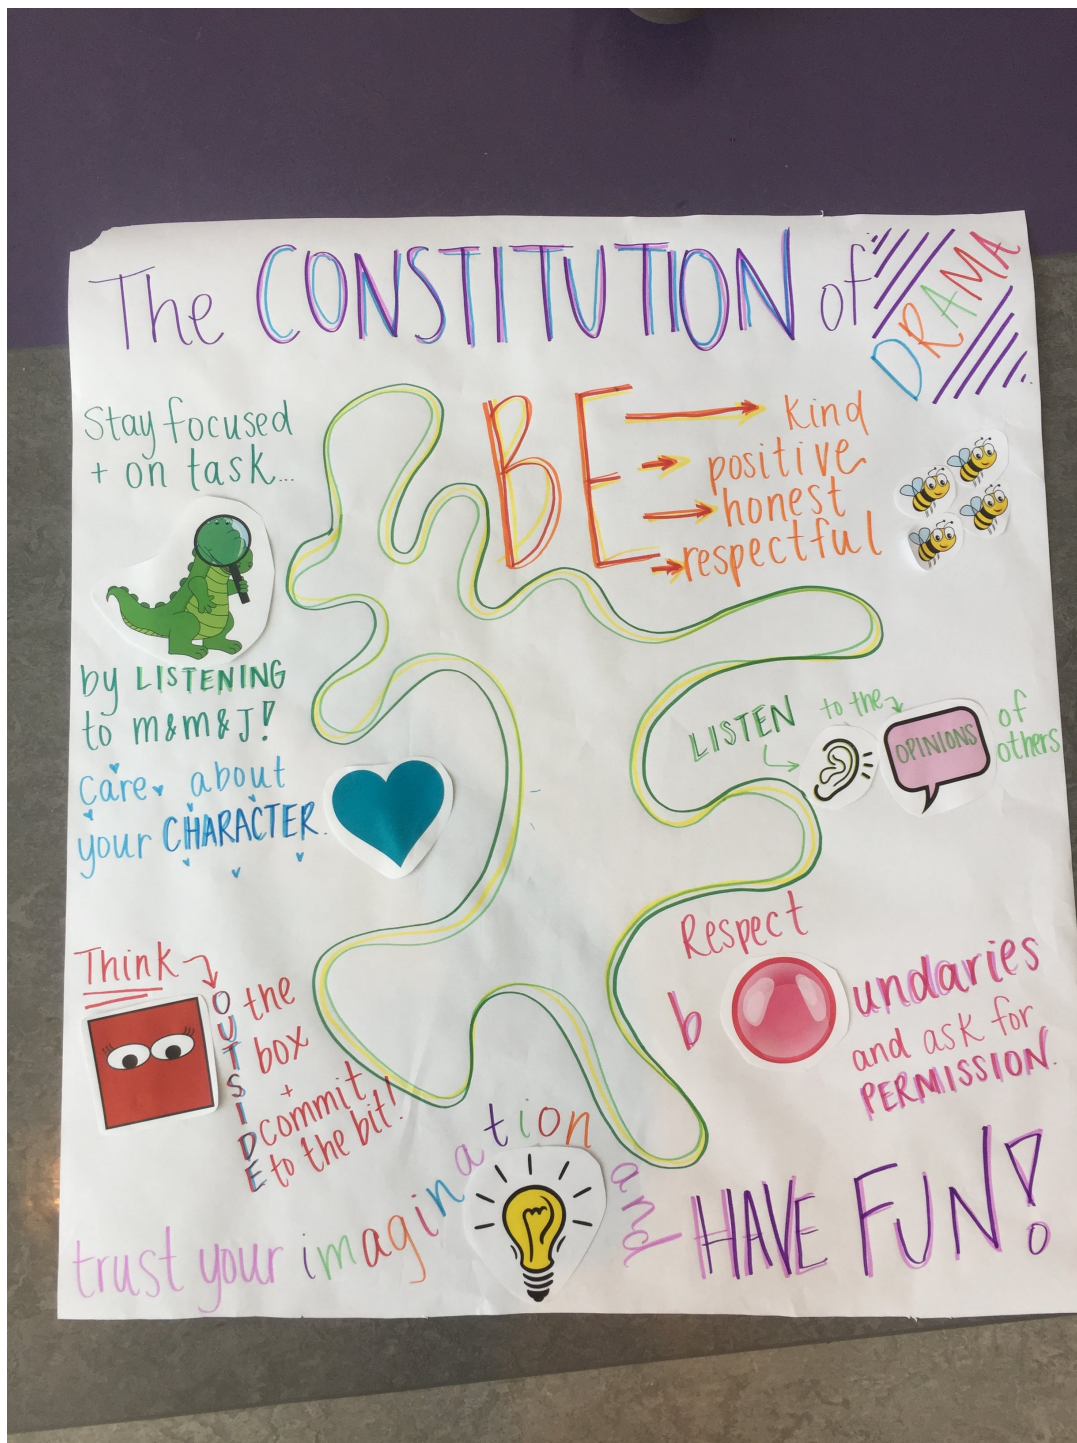 The CONSTITUTION of DRAMA
Stay focused
+ on task...
by LISTENING
to m&m&J!
BE
kind
positive
honest
respectful
LISTEN to the OPINIONS of
others
care about
your CHARACTER.
Think
OUTSIDE
the
box
+
commit
to the bit!
Respect
b undaries
and ask for
PERMISSION.
trust your imagination and HAVE FUN!